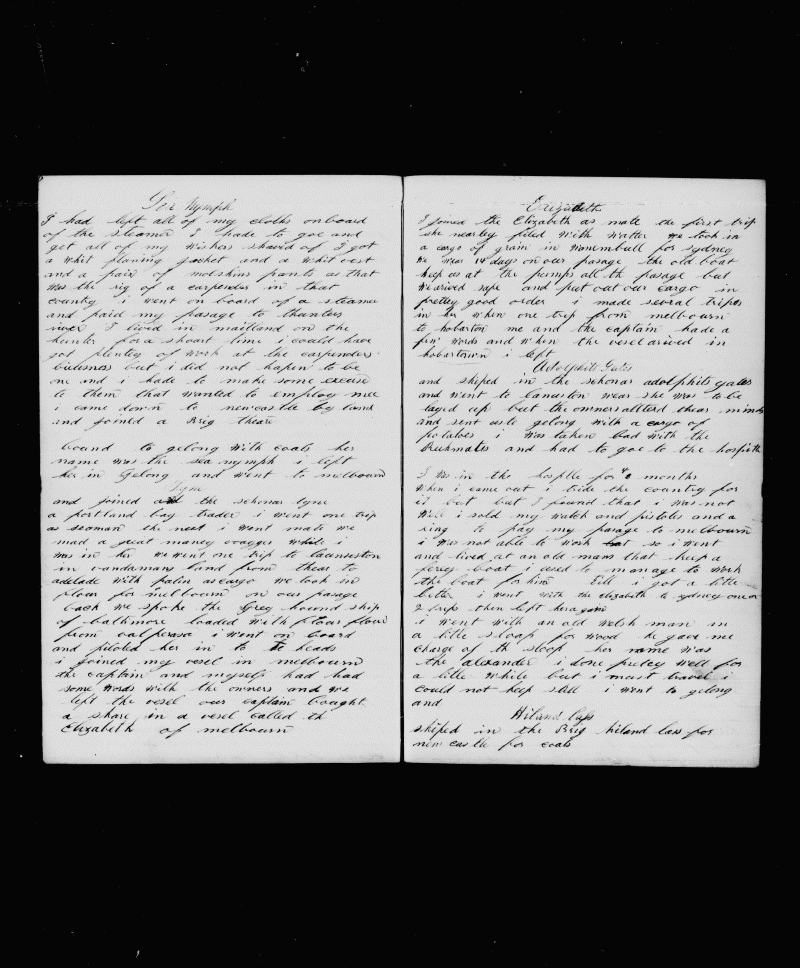 See Nymph
I had left all of my cloths onboard
of the steamer I hade to goe and
get all of my wiskers shaved of I got
a whit planing jacket and a whit vest
and a pair of molskins pants as that
was the rig of a carpender in that
county i went on board of a steamer
and paid my pasage to thunters
river I lived in maitland on the
hunter for a shoart time i could have
got plentey of work at the carpenders
buisness but i did not hapen to be
one and i hade to make some excuse
to them that wanted to employ mee
i came down to newcastle by land
and joined a Brig theare
bound to gelong with coals her
name was the sea nymph i left
her in Gelong and went to melbourn
Lyne
and joined the schonar lyne
a portland bay trader i went one trip
as seaman the next i went mate we
mad a great maney voages while i
was in her we went one trip to launseston
in vandamans land from thear to
adelade with palin as cargo we took in
flour for melbourn on our pasage
back we spoke the Grey hound ship
of balthmore loaded with flour
from valperaso i went on board
and piloted her in to heads
i joined my vesel in melbourn
the captain and myself had had
some words with the owners and we
left the vesel our captain bought
a share in a vesel called th
Elizabeth of melbourn
Elizabeth
I joined the Elizabeth as mate the first trip
she nearley filed with watter we took in
a cargo of grain in for sydney
we was 14 days on our pasage the old boat
keep us at the pumps all th pasage but
we arived safe and put out our cargo in
prettey good order i made several trips
in her when one trip from melbourn
to hobarton me and the captain hade a
few words and when the vesel arived in
hobartown i left
Adolphits Yates
and shiped in the schonar adolphits yates
and went to lanuston wear she was to be
layed up but the owners allterd thear minds
and sent us to gelong with a cargo of
potatoes i was taken bad with the
Rhukmates and had to goe to the hospitle
I was in the hospitle for months
When i came out i tride the country for
it but but I found that i was not
well i sold my watch and pistoles and a
ring to pay my pasage to melbourn
i was not able to work so i went
and lived at an old mans that keep a
ferey boat i used to manage to work
the boat for him till i got a little
better i went with the elizabeth to sydney one or
2 trips then left her again
i went with an old welsh man in
a litle sloap for wood he gave me
charge of th sloop her name was
the alexander i done pretey well for
a litle while but i must travel i
could not keep still i went to gelong
and
Hiland lass
shiped in the Brig hiland lass for
new castle for coals